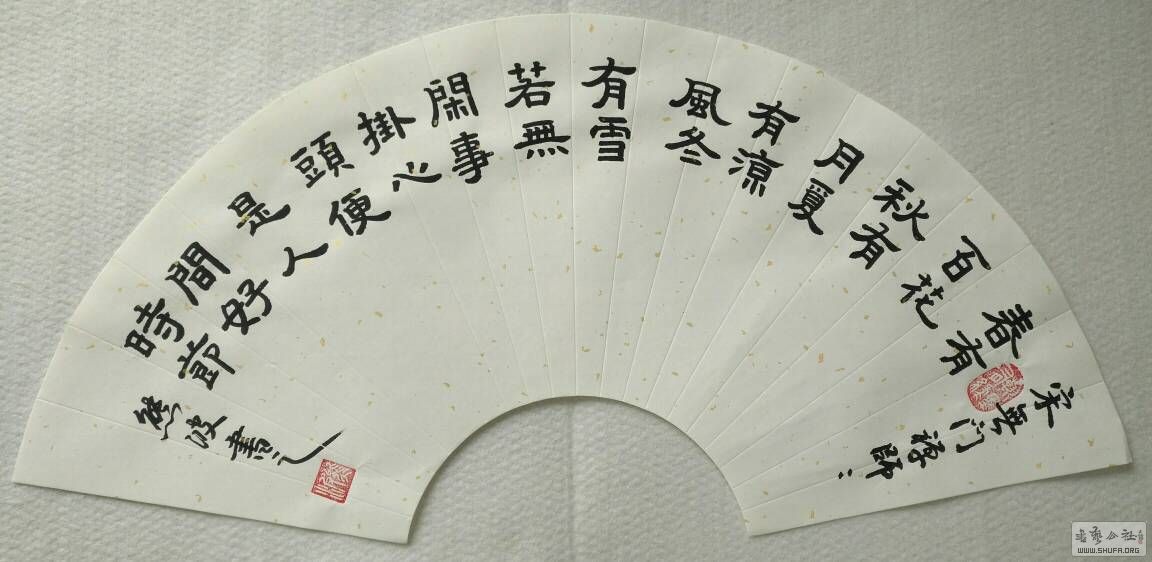 宋無门禅師：
春有
百花
秋有
月夏
有涼
風冬
有雪
若無
閑事
掛心
頭便
是人
間好
時節
熊波書之
书艺公社
WWW.SHUFA.ORG